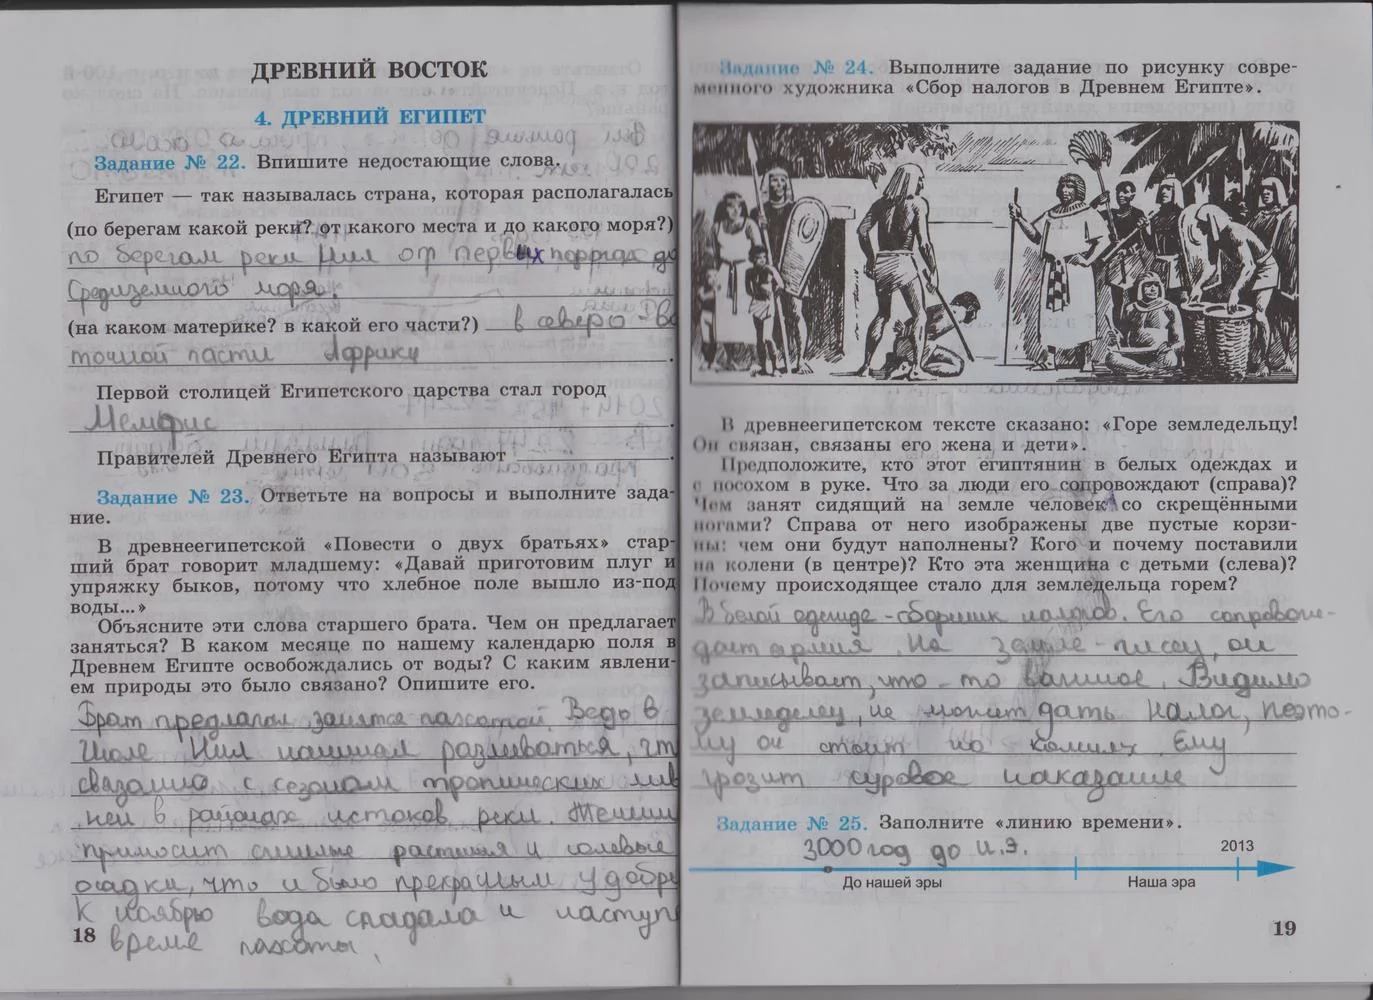 ДРЕВНИЙ ВОСТОК
4. ДРЕВНИЙ ЕГИПЕТ
Задание № 22. Впишите недостающие слова.
Египет — так называлась страна, которая располагалась
(по берегам какой реки? от какого места и до какого моря?)
по берегам реки Нил от первых порогах до
Средиземного моря.
(на каком материке? в какой его части?) в северо-во
точной части Африки.
Первой столицей Египетского царства стал город
Мемфис.
Правителей Древнего Египта называют
Задание № 23. Ответьте на вопросы и выполните зада-
ние.
В древнеегипетской «Повести о двух братьях» стар-
ший брат говорит младшему: «Давай приготовим плуг и
упряжку быков, потому что хлебное поле вышло из-под
воды...»
Объясните эти слова старшего брата. Чем он предлагает
заняться? В каком месяце по нашему календарю поля в
Древнем Египте освобождались от воды? С каким явлени-
ем природы это было связано? Опишите его.
Брат предлагал занятся пахотой. Ведь в
Июле Нил начинал разливаться, чт
связанно с сезоном тропических лив
ней в районах истоков реки. Течении
приносит гнилые растения и илевые
осадки, что и было прекрасным удобр
К ноябрю вода спадала и наступ
время пахоты.
18
Задание № 24. Выполните задание по рисунку совре-
менного художника «Сбор налогов в Древнем Египте».
В древнеегипетском тексте сказано: «Горе земледельцу!
Он связан, связаны его жена и дети».
Предположите, кто этот египтянин в белых одеждах и
с посохом в руке. Что за люди его сопровождают (справа)?
Чем занят сидящий на земле человек со скрещёнными
ногами? Справа от него изображены две пустые корзи-
ны: чем они будут наполнены? Кого и почему поставили
на колени (в центре)? Кто эта женщина с детьми (слева)?
Почему происходящее стало для земледельца горем?
В белой одежде - сборщик налогов. Его сопровож-
дает армия. На земле - писец, он
записывает, что-то важное. Видимо
земледелец, не может дать налог, поэто-
му он стоит на коленях. Ему
грозит суровое наказание
Задание № 25. Заполните «линию времени».
3000 год до н.э.
2013
До нашей эры
Наша эра
19